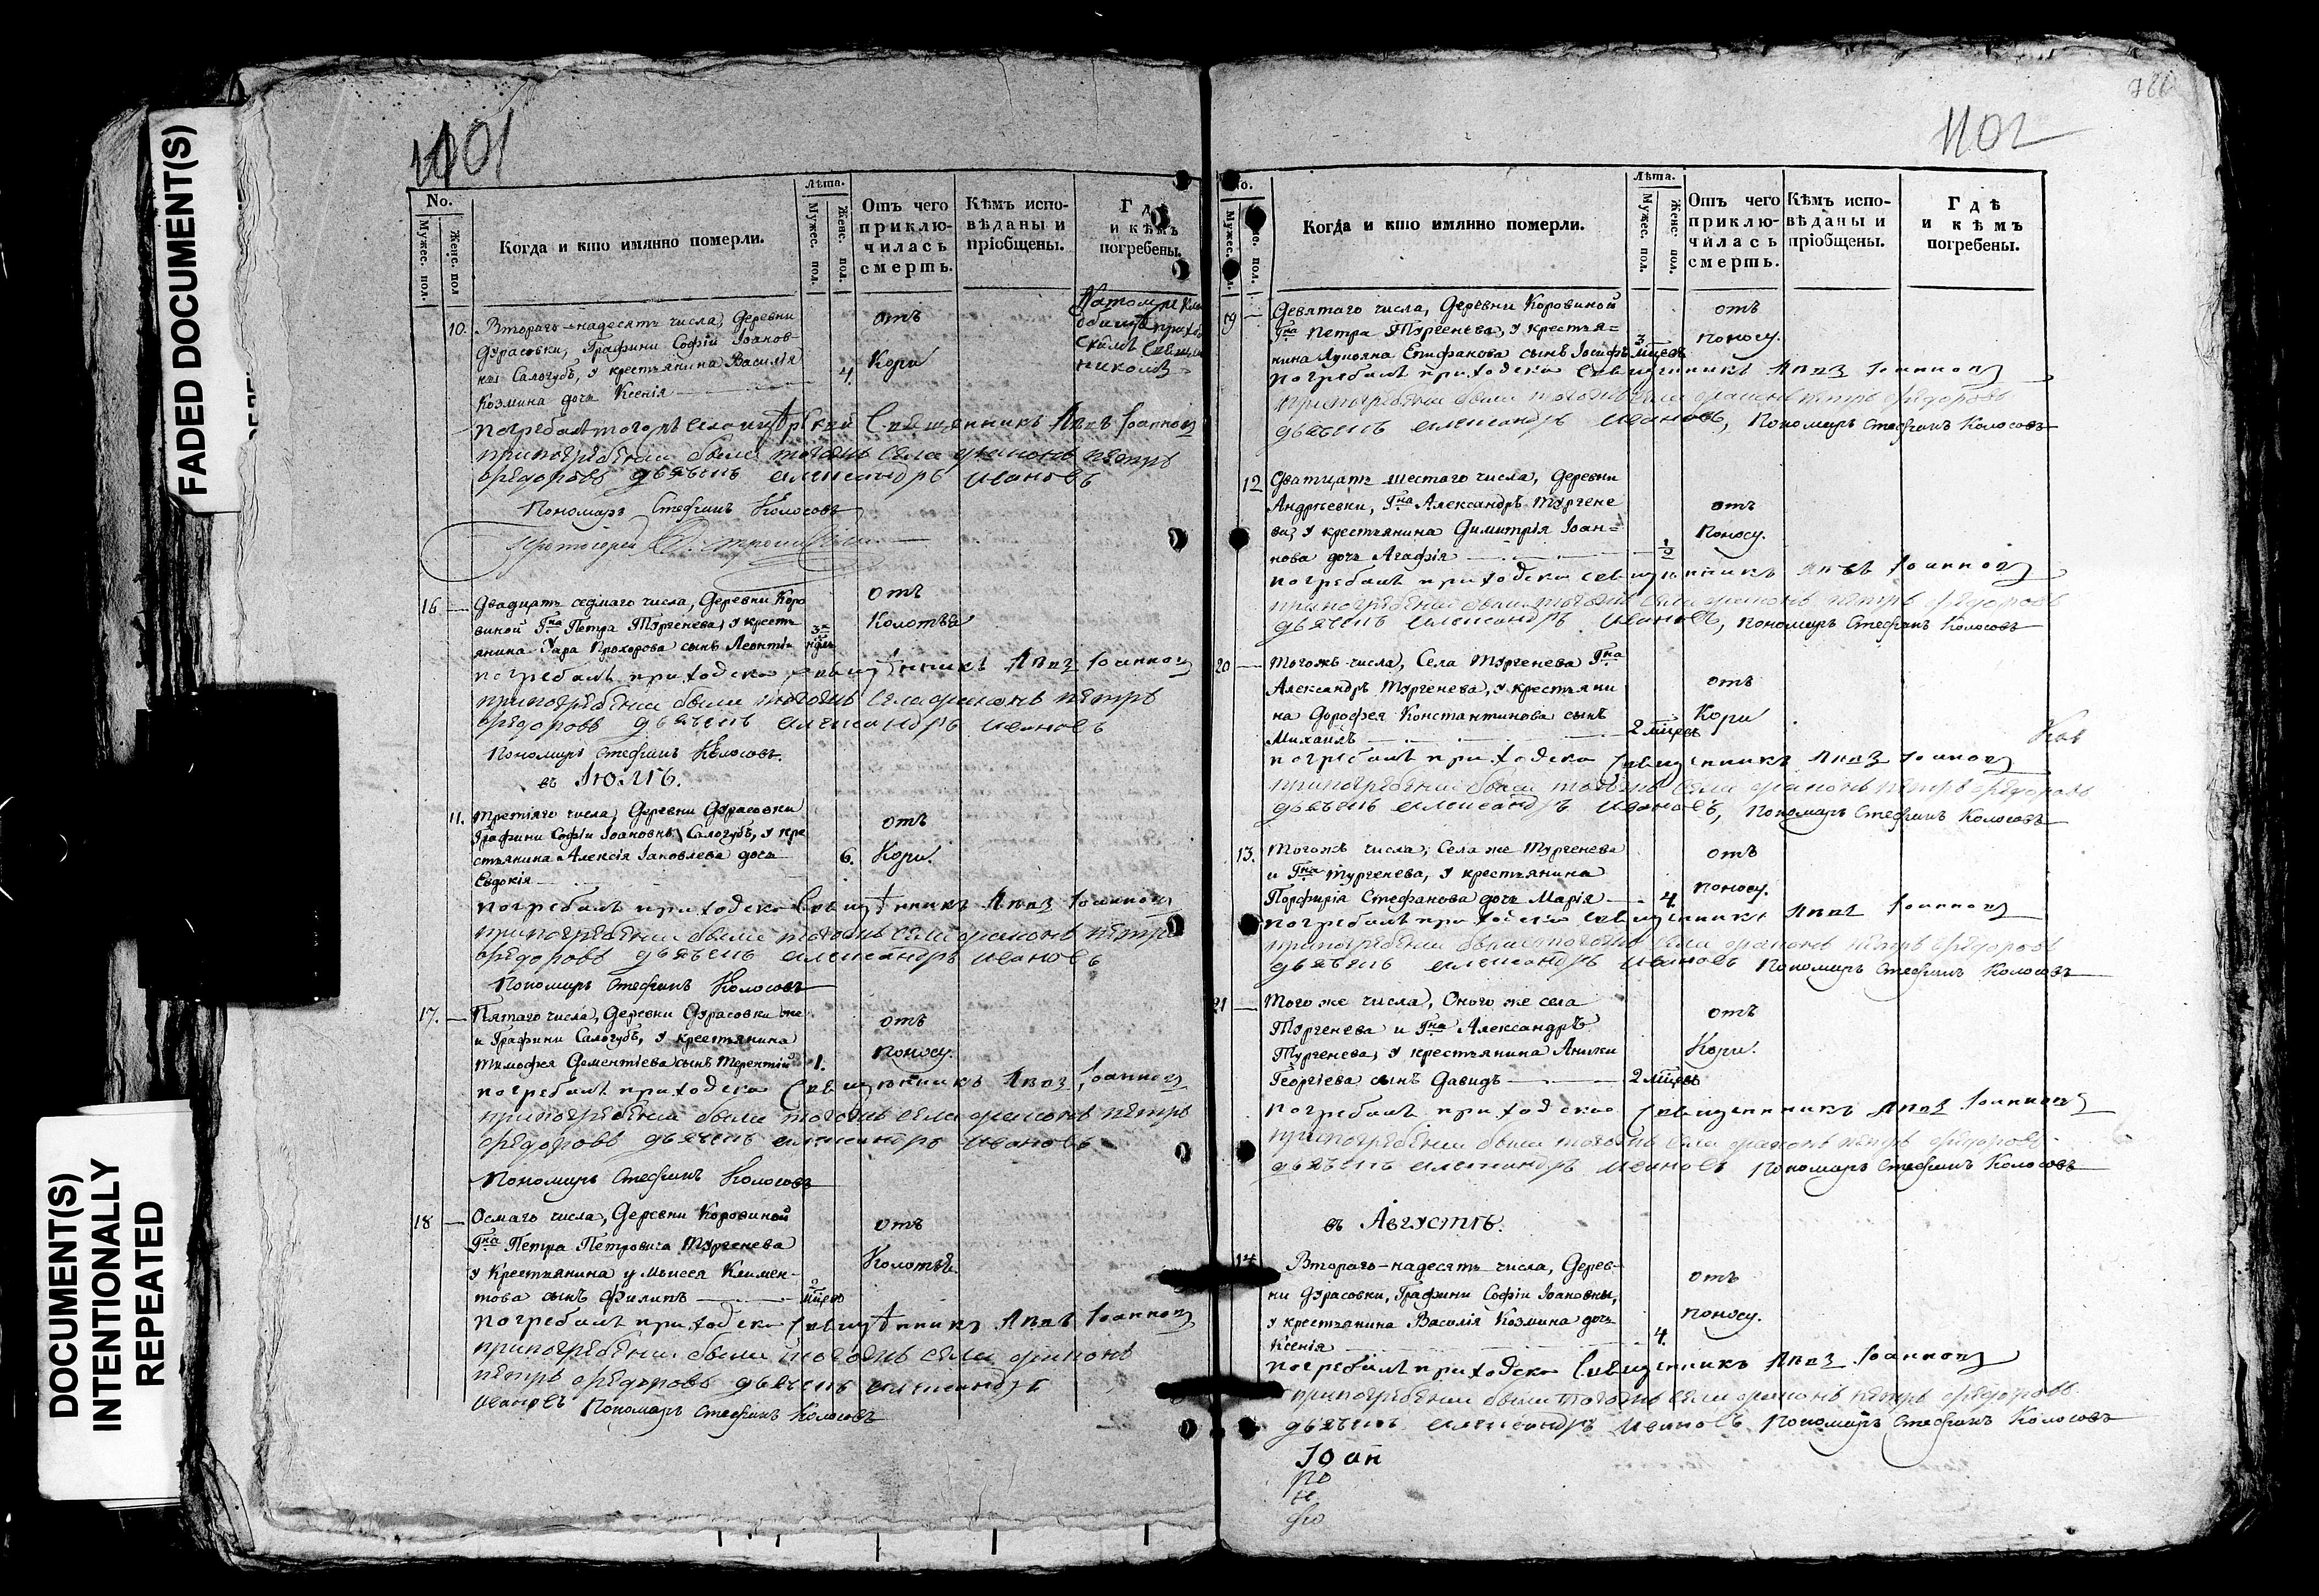 FADED DOCUMENT(S)
DOCUMENT(S)
INTENTIONALLY
REPEATED
1101
No.
Мужес. пол.
Женс. пол
Когда и кто имянно померли.
Лѣта.
Мужес. пол.
Женс. пол.
Отъ чего
приклю-
чилась
смерть.
Кѣмъ испо-
вѣданы и
пріобщены.
Гдѣ
и кѣмъ
погребены.
10. Втораго-надесять числа, Деревни
Дурасовки, Графини Софіи Іоанов-
ны Салогубъ, у крестьянина Василія
Козмина дочь Ксенія
4.
отъ
Кори
Священникъ Іоанновъ
при погребеніи были тогожъ села діаконъ петръ
федоровъ дьячекъ александръ ивановъ
Пономарь Стефанъ Колосовъ
16 — Двадцать седмаго числа, Деревни Коро
виной Гна Петра Тургенева, у кресть
янина Уара Прохорова сынъ Леонтій
отъ
Колотья
погребалъ приходской священникъ Іоанновъ
при погребеніи были тогожъ села діаконъ петръ
федоровъ дьячекъ александръ ивановъ
Пономарь Стефанъ Колосовъ.
въ Іюлѣ.
11. Третіяго числа, Деревни Дурасовки
Графини Софіи Іоановны Салогубъ, у кре
стьянина Алексія Іаковлева дочь
Евдокія
6.
отъ
Кори.
погребалъ приходской Священникъ Іоанновъ
при погребеніи были тогожъ села діаконъ петръ
федоровъ дьячекъ александръ ивановъ
Пономарь Стефанъ Колосовъ
17. — Пятаго числа, Деревни Дурасовки же
и Графини Салогубъ, у крестьянина
Тимофея Дементіева сынъ Терентій
1.
отъ
Поносу.
погребалъ приходской Священникъ Іоанновъ
при погребеніи были тогожъ села діаконъ петръ
федоровъ дьячекъ александръ ивановъ
Пономарь Стефанъ Колосовъ
18 — Осмаго числа, Деревни Коровиной
Гна Петра Петровича Тургенева
у Крестьянина у Моисея Климен-
това сынъ Филипъ
2
отъ
Колотья.
погребалъ приходской Священникъ Іоанновъ
при погребеніи были тогожъ села діаконъ
петръ федоровъ дьячекъ александръ
ивановъ Пономарь Стефанъ Колосовъ
1102
No.
Мужес.
пол.
Когда и кто имянно померли.
Лѣта.
Мужес. пол.
Женс. пол.
Отъ чего
приклю-
чилась
смерть.
Кѣмъ испо-
вѣданы и
пріобщены.
Гдѣ
и кѣмъ
погребены.
Девятаго числа, Деревни Коровиной
Гна Петра Тургенева, у крестья=
нина Лукояна Епифанова сынъ Іосифъ
3
отъ
поносу.
погребалъ приходской Священникъ Іоанновъ
при погребеніи были тогожъ села діаконъ петръ федоровъ
дьячекъ александръ ивановъ, Пономарь Стефанъ Колосовъ
12 Дватцать шестаго числа, Деревни
Андреевки, Гна Александръ Тургене
ва, у крестьянина Димитрія Іоан=
нова дочь Агафія
1/2
отъ
Поносу.
погребалъ приходской священникъ Іоанновъ
при погребеніи были тогожъ села діаконъ петръ федоровъ
дьячекъ александръ ивановъ, пономарь Стефанъ Колосовъ
20 — Тогожъ числа, Села Тургенева Гна
Александръ Тургенева, у крестьяни
на Дорофея Константинова сынъ
Михаилъ
2
отъ
Кори
погребалъ приходской Священникъ Іоанновъ
при погребеніи были тогожъ села діаконъ петръ федоровъ
дьячекъ александръ ивановъ, Пономарь Стефанъ Колосовъ
13. Тогожъ числа, Села же Тургенева
и Гна Тургенева, у крестьянина
Порфирія Стефанова дочь Марія
4.
отъ
поносу.
погребалъ приходской священникъ Іоанновъ
при погребеніи были тогожъ села діаконъ петръ федоровъ
дьячекъ александръ ивановъ Пономарь Стефанъ Колосовъ
21 — Того же числа, Оного же села
Тургенева и Гна Александръ
Тургенева, у крестьянина Аники
Георгіева сынъ Давидъ
2
отъ
Кори.
погребалъ приходской Священникъ Іоанновъ
при погребеніи были тогожъ села діаконъ петръ федоровъ
дьячекъ александръ ивановъ Пономарь Стефанъ Колосовъ
въ Августѣ.
14 Втораго-надесять числа, Дерев-
ни Дурасовки, Графини Софіи Іоановны,
у крестьянина Василія Козмина дочь
Ксенія
4.
отъ
поносу.
погребалъ приходской Священникъ Іоанновъ
при погребеніи были тогожъ села діаконъ петръ федоровъ
дьячекъ александръ ивановъ Пономарь Стефанъ Колосовъ
Іоан
по